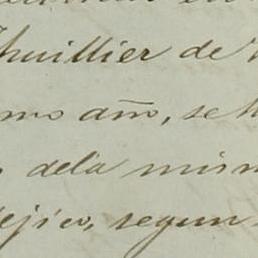 huillier de
mo año, se
dela mism
éjico, segun